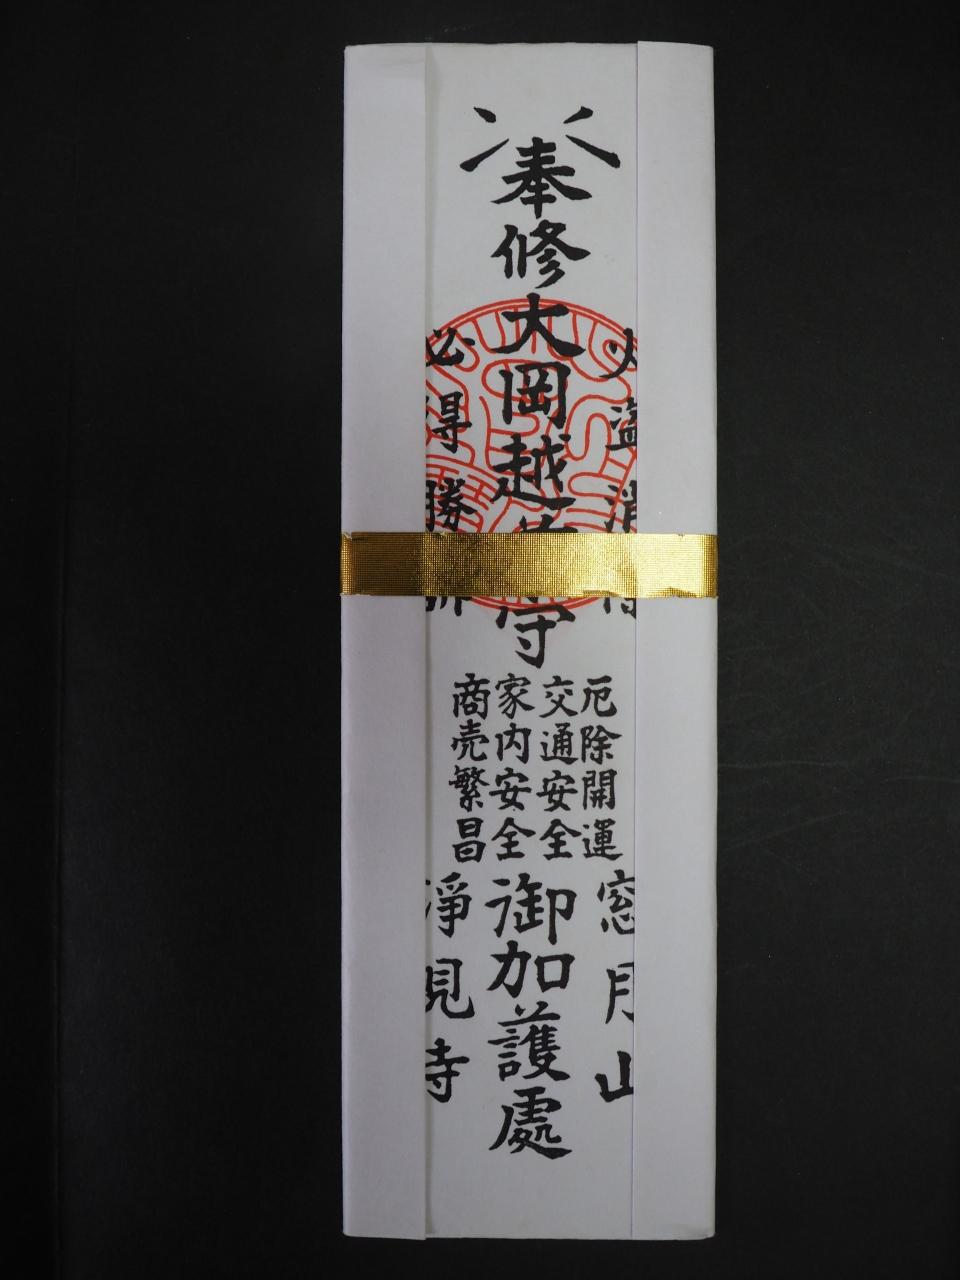 火盗消
奉修大岡越前守
必得勝訴
厄除開運
交通安全
家内安全
商売繁昌
窓月山
御加護處
淨見寺